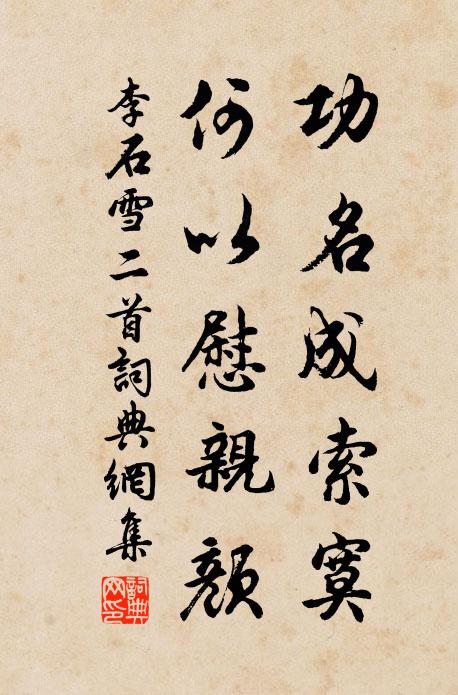 功名成索寞
何以慰親顏
李石雪二首詞典網集
詞典
网印